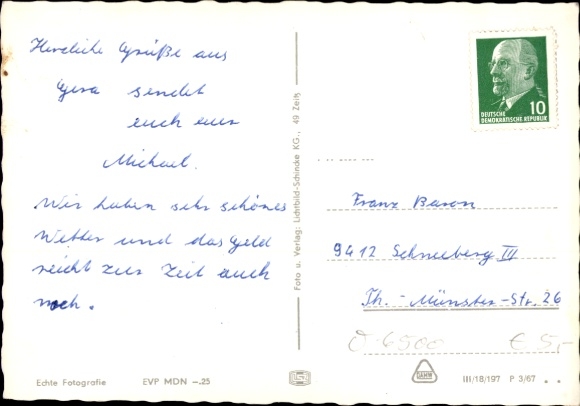 Herzliche Grüße aus
Gera sendet
euch euer
Michael.
Wir haben sehr schönes
Wetter und das Geld
reicht zur Zeit auch
noch.
Echte Fotografie EVP MDN –.25
Foto u. Verlag: Lichtbild-Schincke KG., 49 Zeitz
10
DEUTSCHE
DEMOKRATISCHE REPUBLIK
Franz Baron
9412 Schneeberg III
Th. - Münzer - Str. 26
O-6500 € 5,-
III/18/197 P 3/67